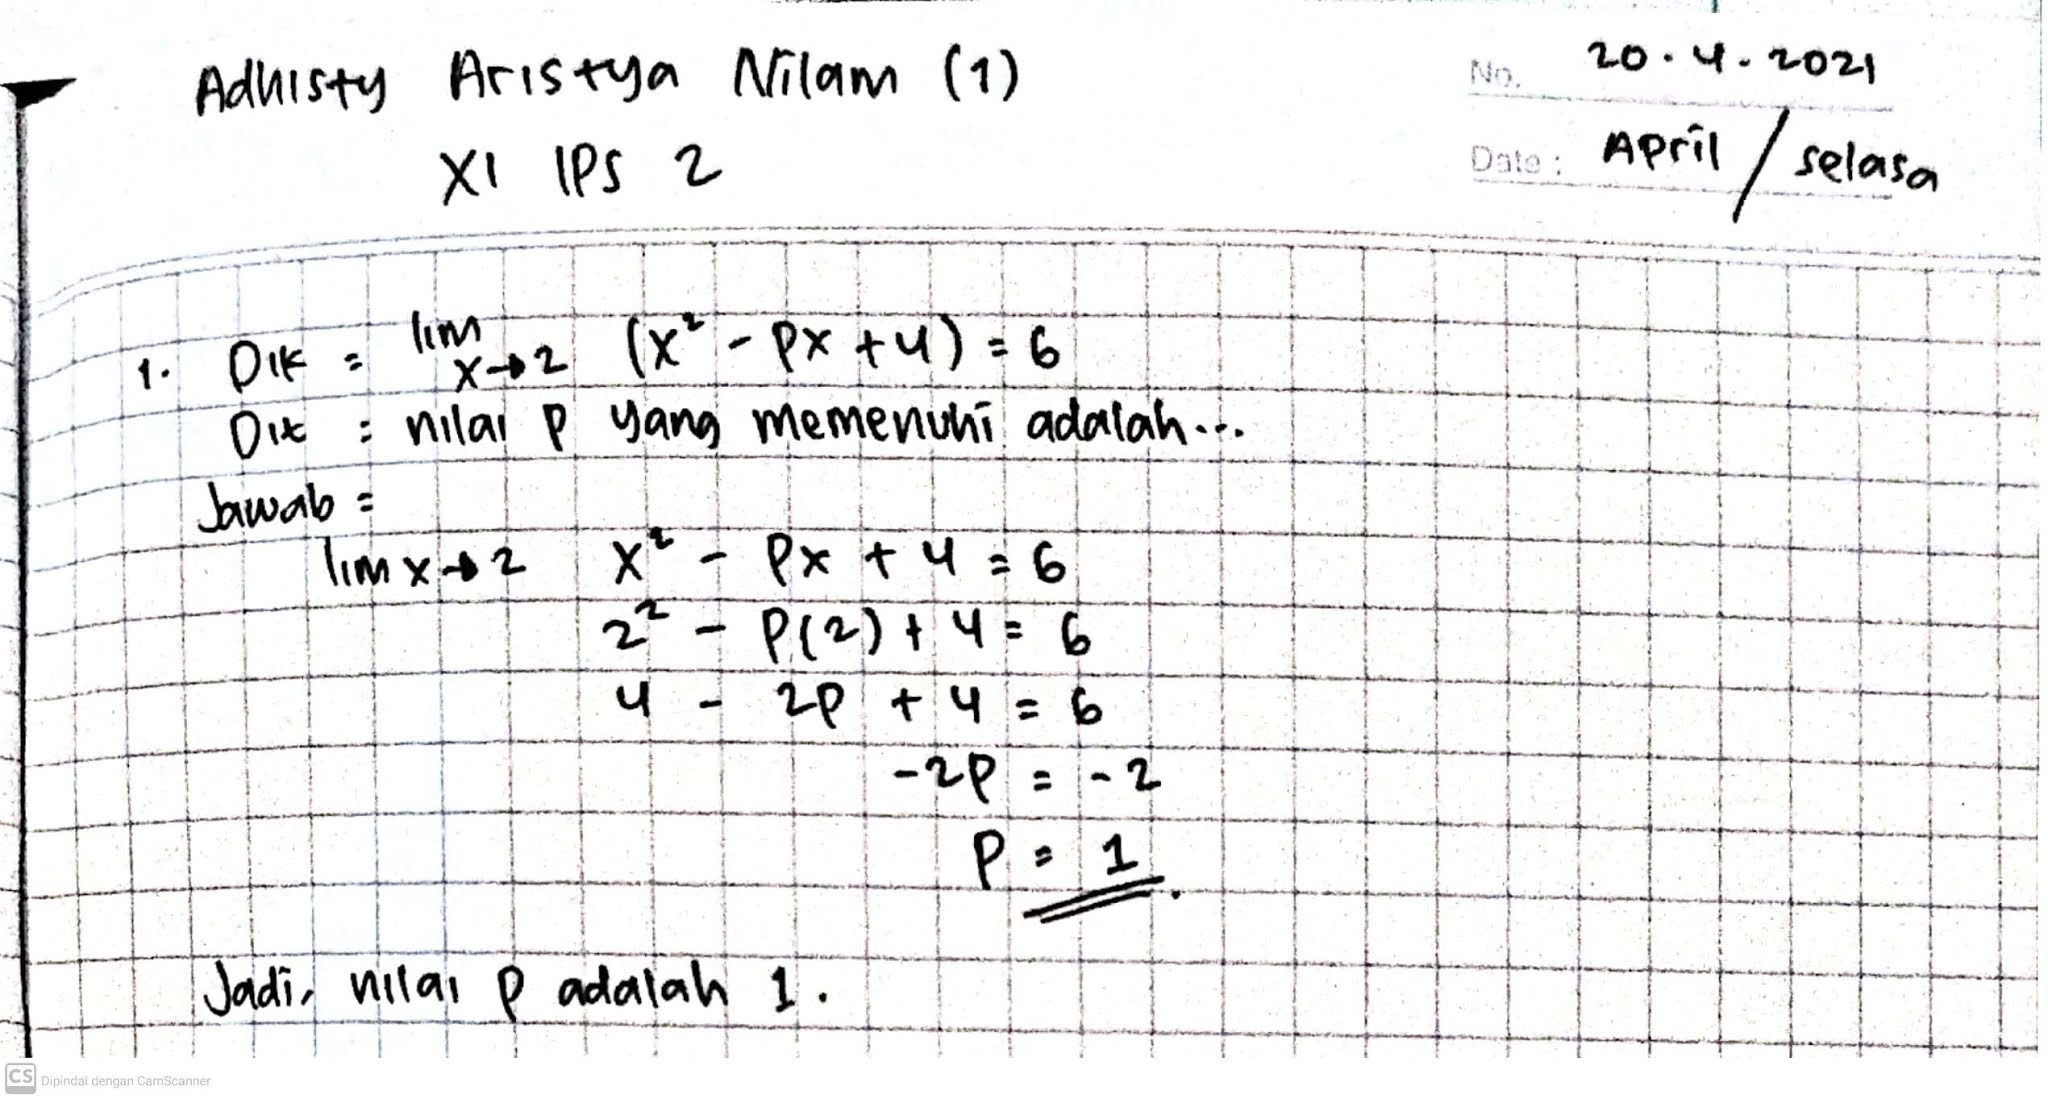 Adhisty Aristya Nilam (1)
XI IPS 2
No. 20.4.2021
Date: April / selasa
1. Dik = lim x→2 (x² - px + 4) = 6
Dit : nilai p yang memenuhi adalah...
Jawab =
lim x→2 x² - px + 4 = 6
2² - p(2) + 4 = 6
4 - 2p + 4 = 6
-2p = -2
p = 1.
Jadi, nilai p adalah 1.
CS Dipindai dengan CamScanner